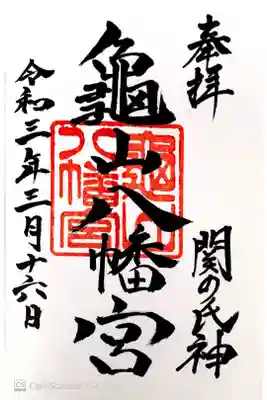 奉拝
関の氏神
龜山八幡宮
令和三年三月十六日
龜山八幡宮
CS CamScanner